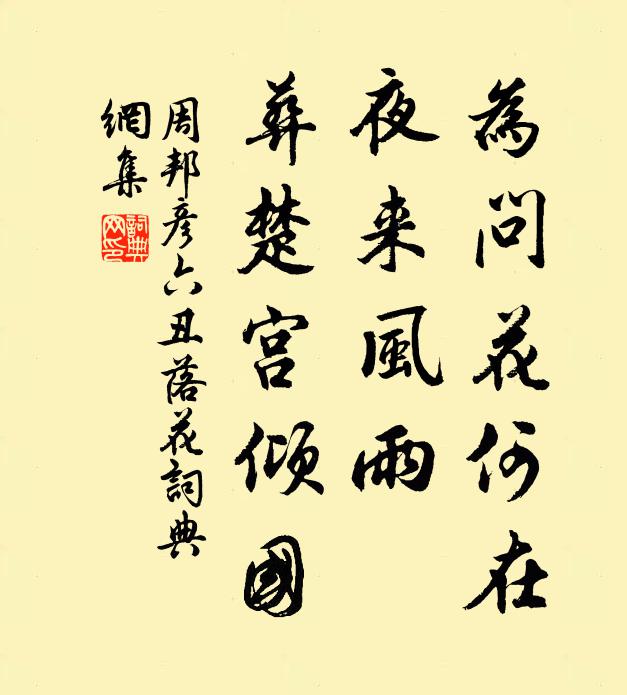 為問花何在
夜来風雨
葬楚宫傾國
周邦彦六丑落花詞典
網集
詞典網印